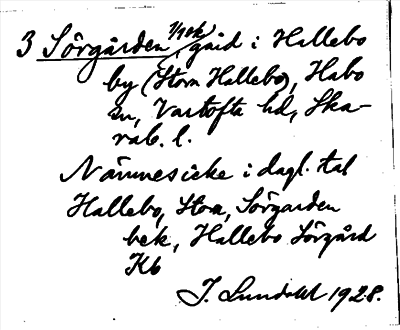 3 Sörgården, 1/10 k, gård i Hallebo
by (Stora Hallebo), Habo
sn, Vartofta hd, Ska-
rab. l.
Nämnes icke i dagl. tal
Hallebo, Stora, Sörgården
bek, Hallebo Sörgård
Kb
J. Lundahl 1928.